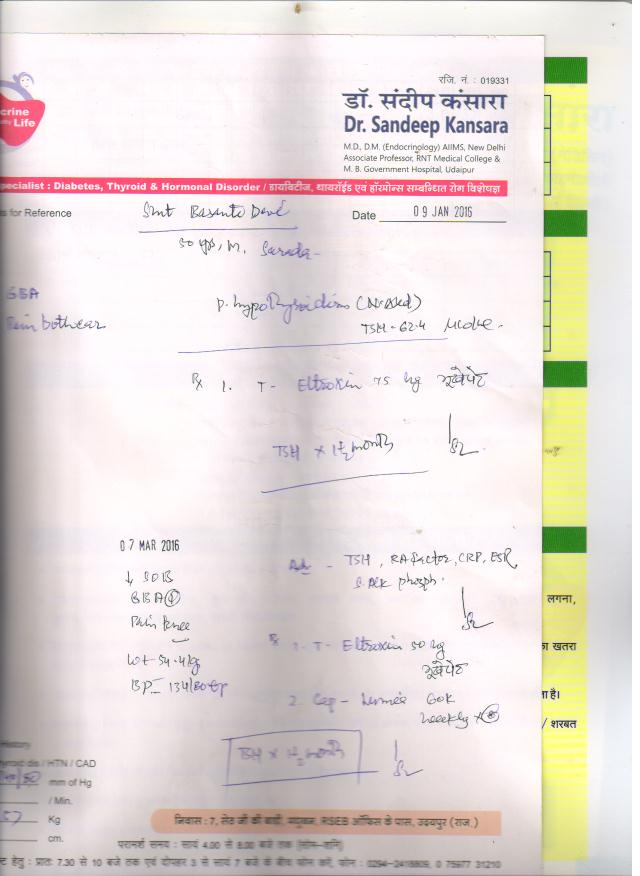 रजि. नं. : 019331
डॉ. संदीप कंसारा
Dr. Sandeep Kansara
M.D., D.M. (Endocrinology) AIIMS, New Delhi
Associate Professor, RNT Medical College &
M. B. Government Hospital, Udaipur
crine
Life
pecialist : Diabetes, Thyroid & Hormonal Disorder / डायबिटीज, थायरॉईड एवं हॉरमोन्स सम्बन्धित रोग विशेषज्ञ
s for Reference
Smt Basanta Devi
Date 09 JAN 2016
50 yrs, M. Sarada
GBA
Pain
P. hypothyroidism
TSH - 62.4
Rx 1. T- Eltroxin 75 ug भूखे पेट
TSH x 1½ month
07 MAR 2016
↓ SOB
GBA
Pain knee
Wt 54.4 kg
BP- 134/80
Adv - TSH, RA factor, CRP, ESR,
S. Alk phosph.
Rx 1. T- Eltroxin 50 ug
भूखे पेट
2. Cap - 60K
weekly x 8
TSH x 1½ month
लगना,
ा खतरा
ता है।
/ शरबत
History
hyroid dis / HTN / CAD
mm of Hg
/ Min.
57 Kg
cm.
निवास : 7, सेठ जी की बाड़ी, मधुबन, RSEB ऑफिस के पास, उदयपुर (राज.)
परामर्श समय : सायं 4.00 से 8.00 बजे तक (सोम-शनि)
ट हेतु : प्रातः 7.30 से 10 बजे तक एवं दोपहर 3 से सायं 7 बजे के बीच फोन करें, फोन : 0294-2418809, 0 75977 31210